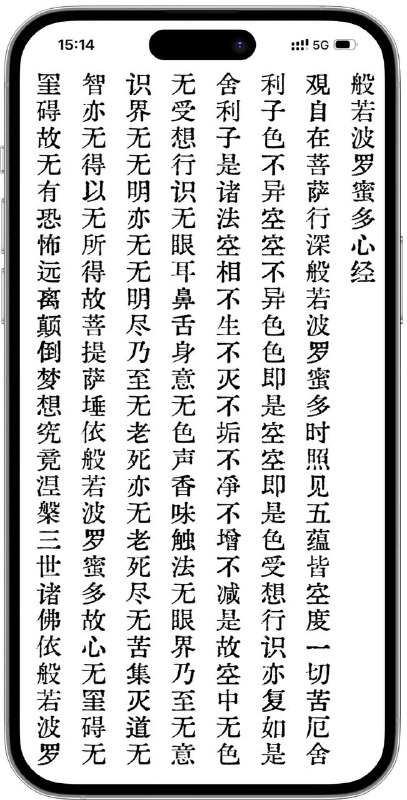 15:14 5G
般若波罗蜜多心经
观自在菩萨行深般若波罗蜜多时照见五蕴皆空度一切苦厄舍
利子色不异空空不异色色即是空空即是色受想行识亦复如是
舍利子是诸法空相不生不灭不垢不净不增不减是故空中无色
无受想行识无眼耳鼻舌身意无色声香味触法无眼界乃至无意
识界无无明亦无无明尽乃至无老死亦无老死尽无苦集灭道无
智亦无得以无所得故菩提萨埵依般若波罗蜜多故心无罣碍无
罣碍故无有恐怖远离颠倒梦想究竟涅槃三世诸佛依般若波罗